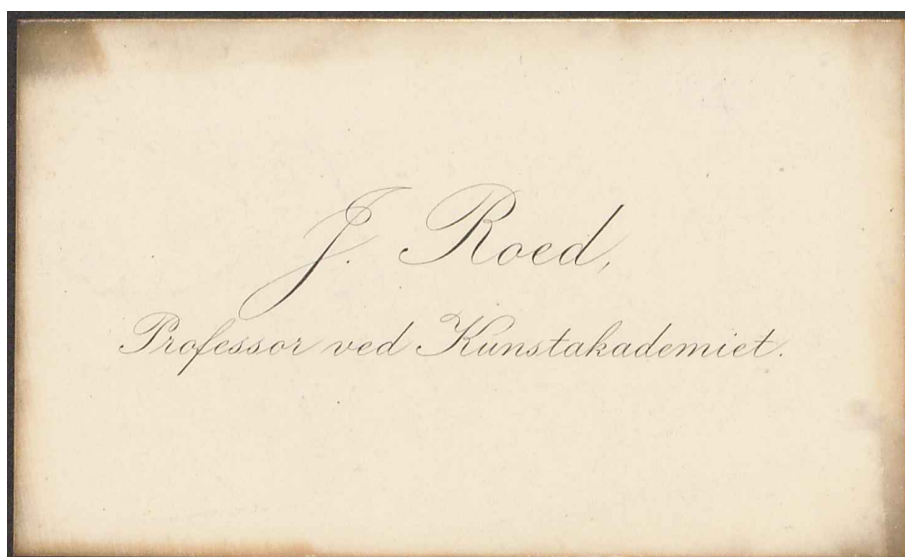 J. Roed,
Professor ved Kunstakademiet.